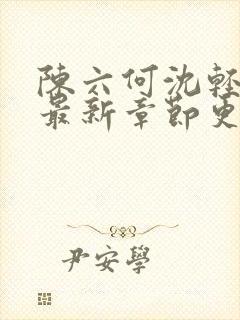 陳六何沈輕
最新章節更
尹安學